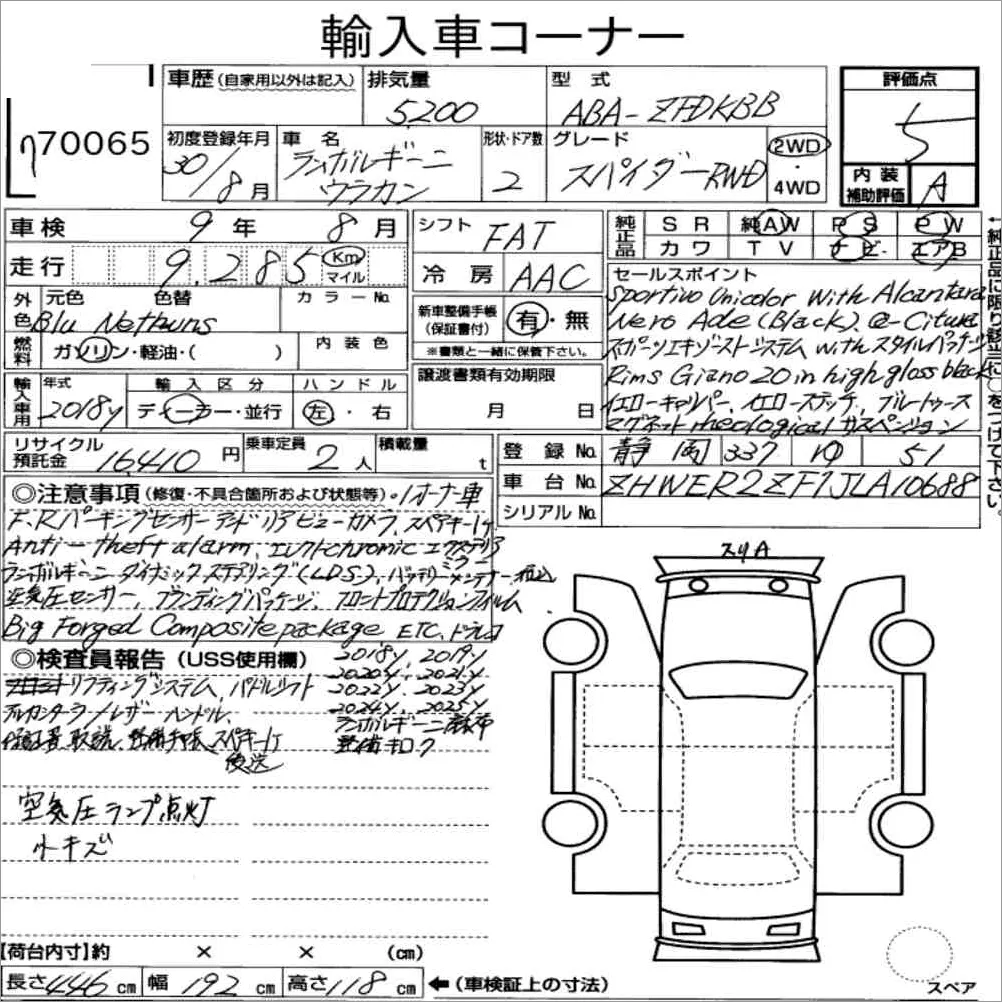 輸入車コーナー
車歴 (自家用以外は記入) 排気量 5200 型式 ABA-ZFDKBB 評価点 5
70065
初度登録年月 30/8月 車名 ランボルギーニ ウラカン 形状・ドア数 2 グレード スパイダーRWD 2WD・4WD 内装補助評価 A
車検 9年 8月 シフト FAT 純正品 SR 純AW PS PW
カワ TV ナビ エアB
←純正品に限り該当に○をつけて下さい。
走行 9,285 Km マイル 冷房 AAC
外色 元色 色替 カラーNo.
Blu Nethuns
新車整備手帳(保証書付) 有・無
※書類と一緒に保管下さい。
燃料 ガソリン・軽油・( ) 内装色
セールスポイント
Sportivo Unicolor with Alcantara
Nero Ade (Black)、@-Citura
スポーツエキゾーストシステム with スタイルパッケージ
Rims Giano 20in high gloss black
イエローキャリパー、イエローステッチ、ブルートゥース
マグネットrheologicalサスペンション
輸入車用 年式 2018y 輸入区分 ディーラー・並行 ハンドル 左・右
譲渡書類有効期限 月 日
リサイクル預託金 16,410円 乗車定員 2人 積載量 t
登録No. 静岡 337 ゆ 51
車台No. ZHWER2ZF1JLA10688
シリアルNo.
◎注意事項 (修復・不具合箇所および状態等)・1オーナー車
F、Rパーキングセンサーアンドリアビューカメラ、スペアキー1ケ
Anti-theft alarm、エレクトchromic エクステリアミラー
ランボルギーニ ダイナミックステアリング(LDS)、バッテリーメンテナー
空気圧センサー、ブランディングパッケージ、フロントプロテクションフィルム
Big Forged Composite package ETC、ドラレコ
◎検査員報告 (USS使用欄)
リフティングシステム、パドルシフト
アルカンターラ/レザーハンドル、
保証書、取説、整備手帳、スペアキー1ケ
後送
2018y、2019y
2020y、2021y
2022y、2023y
2024y、2025y
ランボルギーニ
整備キロク
空気圧ランプ点灯
小キズ
スリA
スペア
【荷台内寸】約 × × (cm)
長さ 446 cm 幅 192 cm 高さ 118 cm ←(車検証上の寸法)